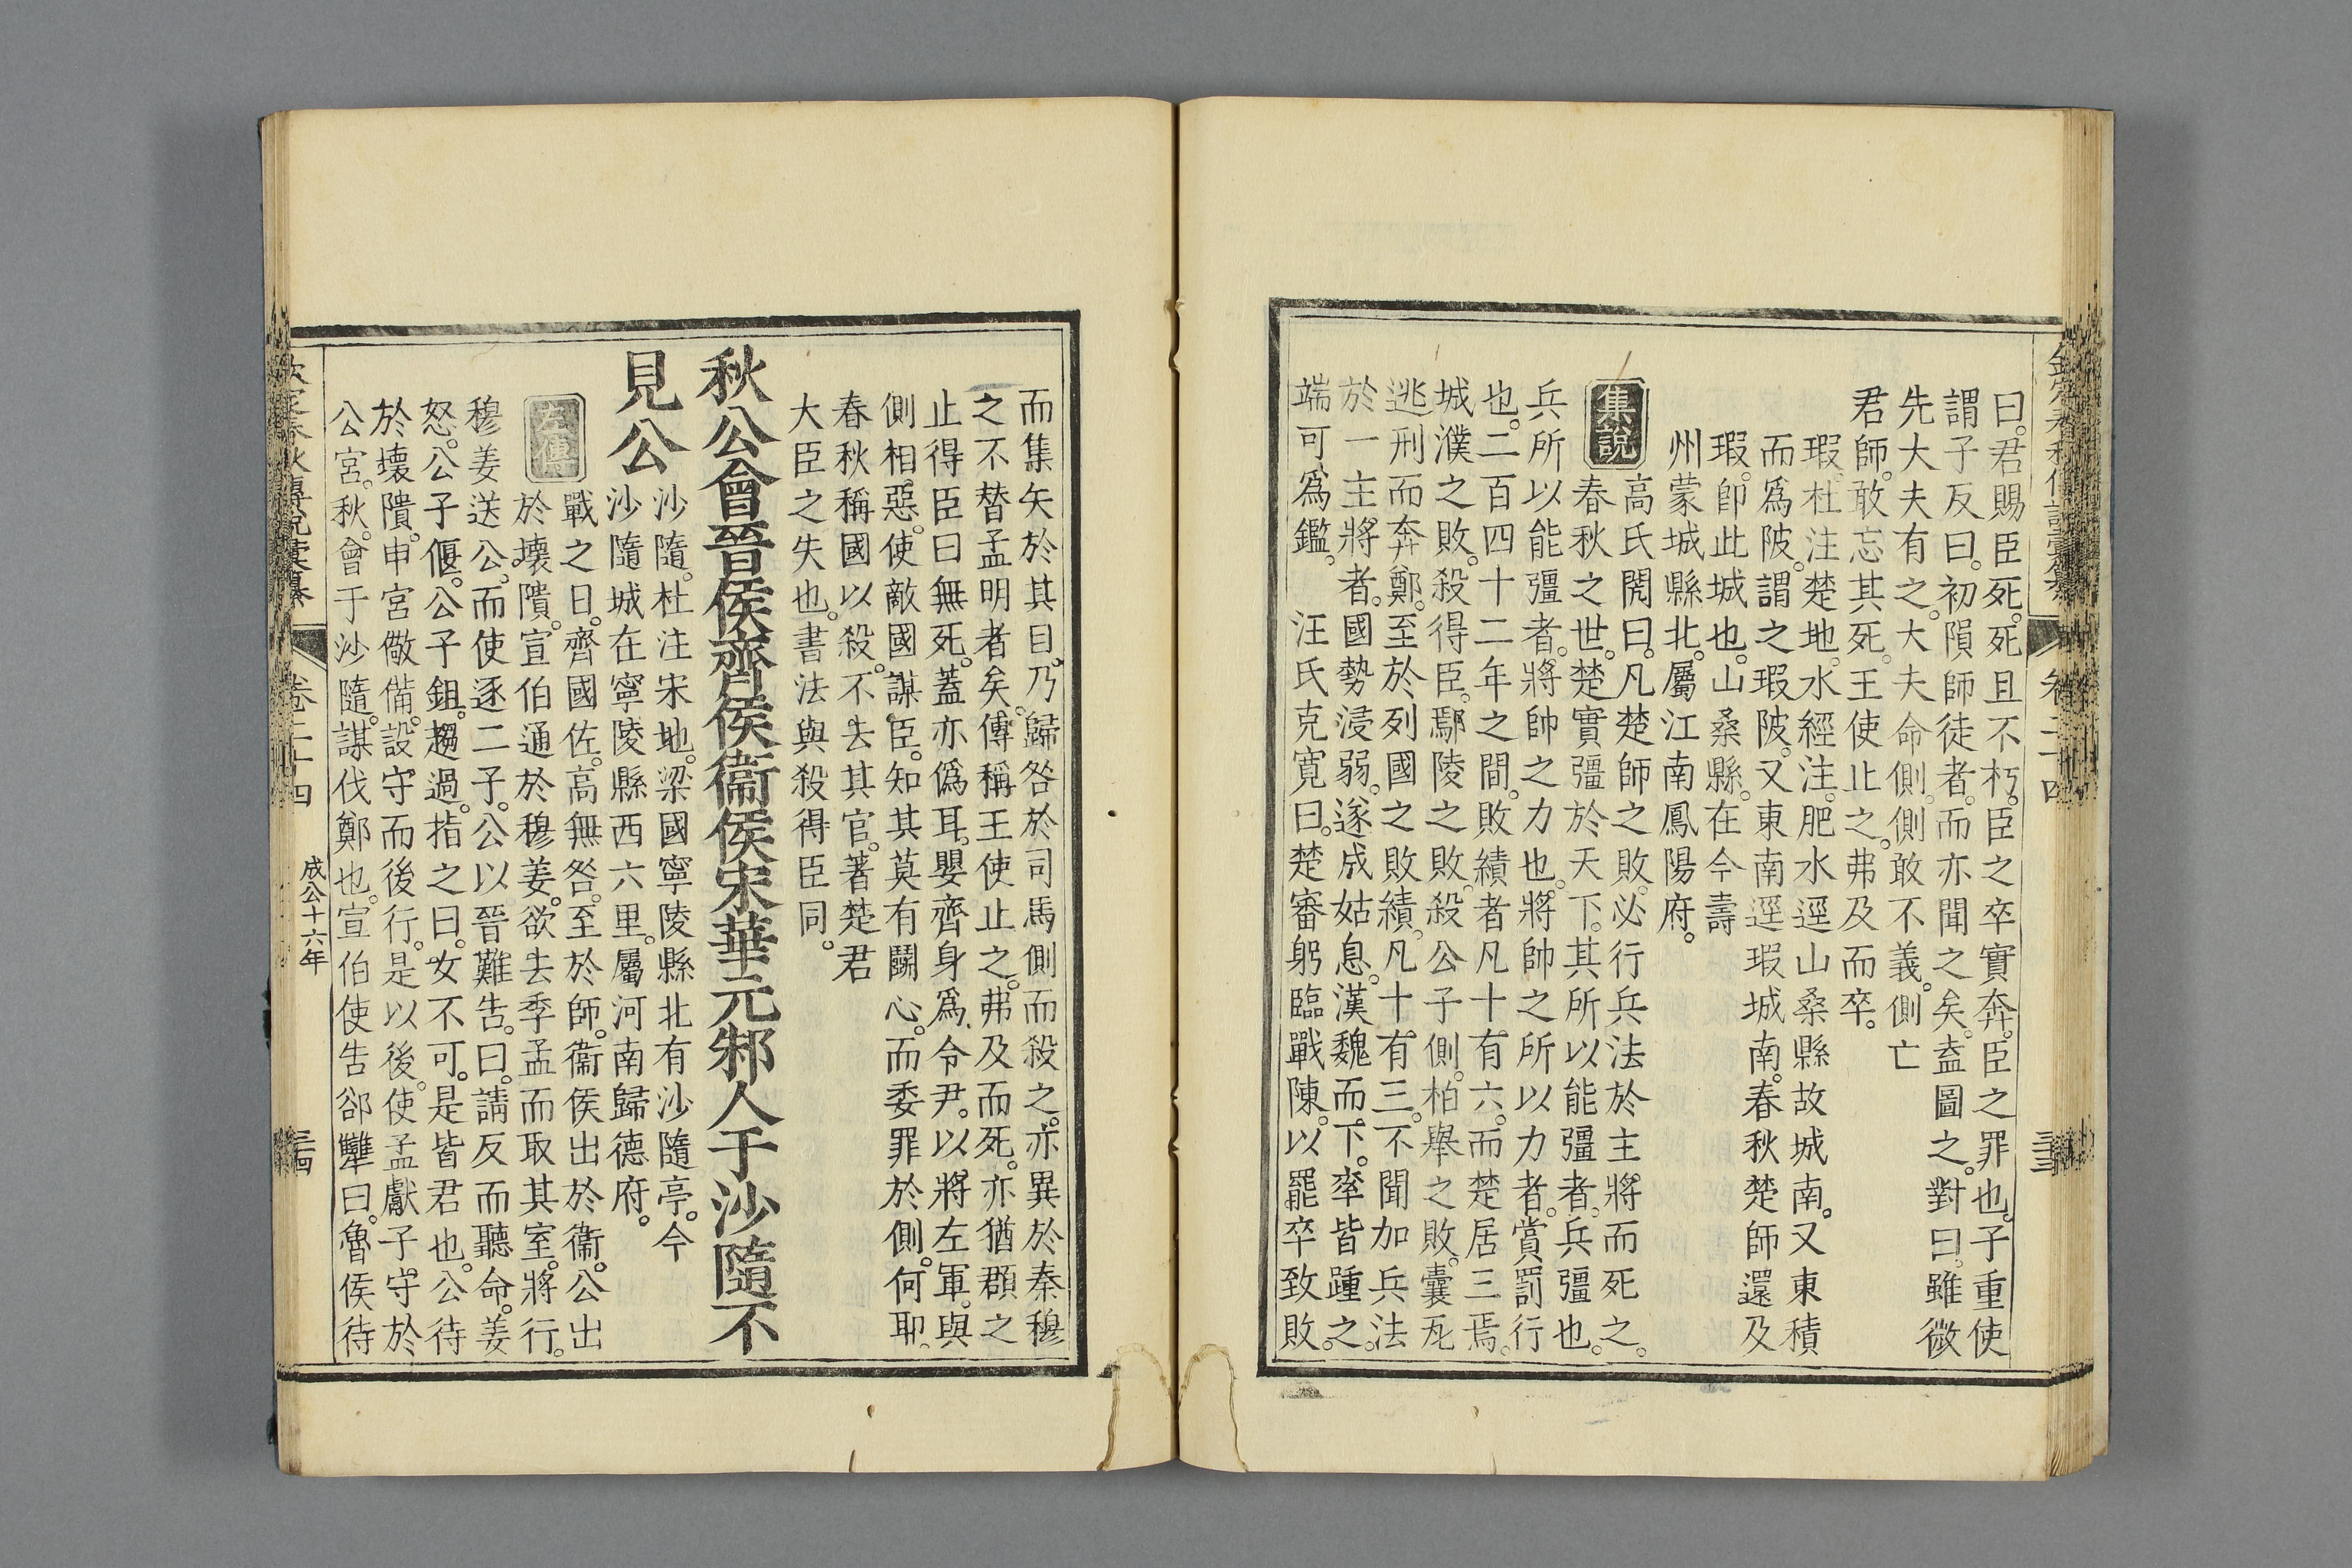 曰。君賜臣死。死且不朽。臣之卒實奔。臣之罪也。子重使
謂子反曰。初隕師徒者。而亦聞之矣。盍圖之。對曰。雖微
先大夫有之。大夫命側。側敢不義。側亡
君師。敢忘其死。王使止之。弗及而卒。
瑕。杜注楚地。水經注。肥水逕山桑縣故城南。又東積
而爲陂。謂之瑕陂。又東南逕瑕城南。春秋楚師還及
瑕。卽此城也。山桑縣。在今壽
州蒙城縣北。屬江南鳳陽府。
集說
高氏閌曰。凡楚師之敗。必行兵法於主將而死之。
春秋之世。楚實彊於天下。其所以能彊者。兵彊也。
兵所以能彊者。將帥之力也。將帥之所以力者。賞罰行
也。二百四十二年之間。敗績者凡十有六。而楚居三焉。
城濮之敗。殺得臣。鄢陵之敗。殺公子側。柏舉之敗。囊瓦
逃刑而奔鄭。至於列國之敗績。凡十有三。不聞加兵法
於一主將者。國勢浸弱。遂成姑息。漢魏而下。率皆踵之。
端可爲鑑。　汪氏克寬曰。楚審躬臨戰陳。以罷卒致敗。
而集矢於其目。乃歸咎於司馬側而殺之。亦異於秦穆
之不替孟明者矣。傳稱王使止之。弗及而死。亦猶頵之
止得臣曰無死。蓋亦僞耳。嬰齊身爲令尹。以將左軍。與
側相惡。使敵國謀臣。知其莫有鬭心。而委罪於側。何耶。
春秋稱國以殺。不去其官。著楚君
大臣之失也。書法與殺得臣同。
秋公會晉侯齊侯衞侯宋華元邾人于沙隨不
見公
沙隨。杜注宋地。梁國寧陵縣北有沙隨亭。今
沙隨城在寧陵縣西六里。屬河南歸德府。
左傳
戰之日。齊國佐。高無咎。至於師。衞侯出於衞。公出
於壞隤。宣伯通於穆姜。欲去季孟而取其室。將行。
穆姜送公。而使逐二子。公以晉難告。曰。請反而聽命。姜
怒。公子偃。公子鉏。趨過。指之曰。女不可。是皆君也。公待
於壞隤。申宮儆備。設守而後行。是以後。使孟獻子。守於
公宮。秋。會于沙隨。謀伐鄭也。宣伯使告郤犨曰。魯侯待
卷二十四
成公十六年